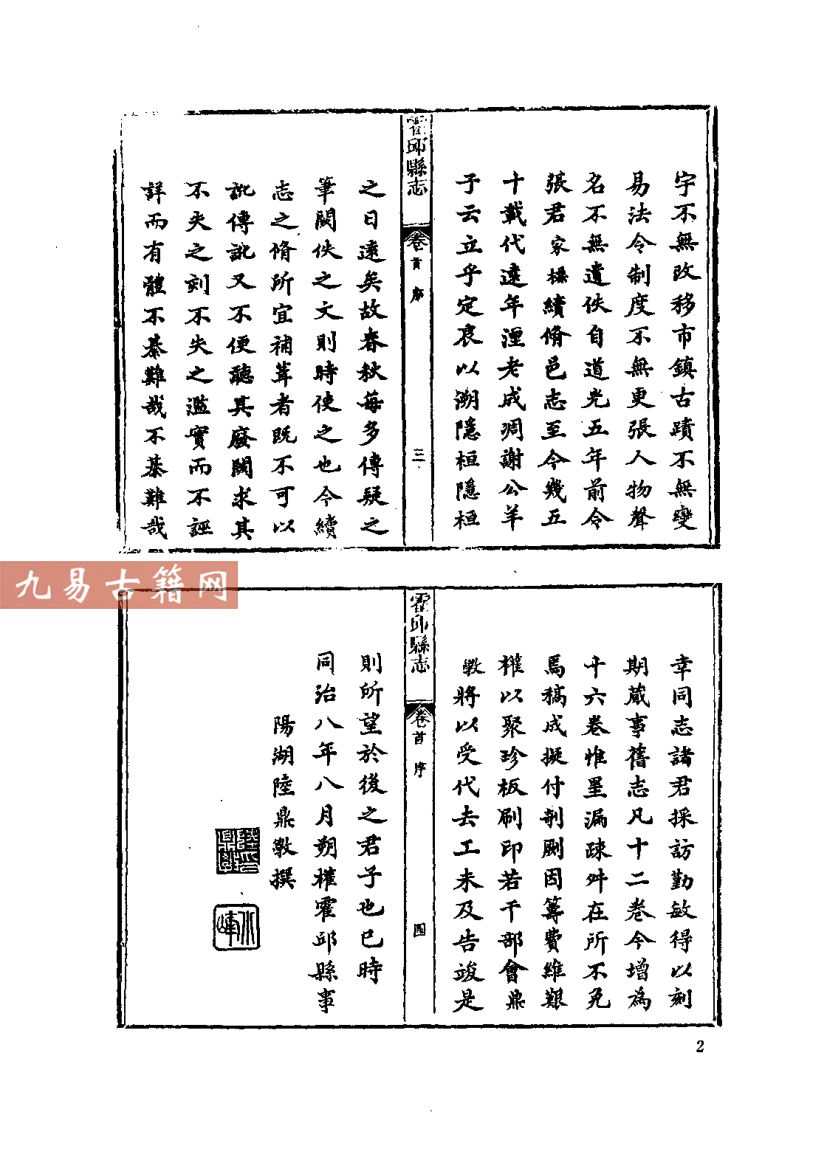 宇不無改移市鎮古蹟不無變
易法令制度不無更張人物聲
名不無遺佚自道光五年前令
張君家檖續脩邑志至今幾五
十載代遠年湮老成凋謝公羊
子云立乎定哀以溯隱桓隱桓
霍邱縣志
卷首
序
三
之日遠矣故春秋每多傳疑之
筆闕佚之文則時使之也今續
志之脩所宜補葺者既不可以
訛傳訛又不便聽其廢闕求其
不失之刻不失之濫實而不誣
詳而有體不綦難哉不綦難哉
九易古籍网
幸同志諸君採訪勤敏得以刻
期蕆事舊志凡十二卷今增為
十六卷惟罣漏疎舛在所不免
焉稿成擬付剞劂因籌費維艱
權以聚珍板刷印若干部會鼎
斆將以受代去工未及告竣是
霍邱縣志
卷首
序
四
則所望於後之君子也已時
同治八年八月朔權霍邱縣事
陽湖陸鼎斆撰
2